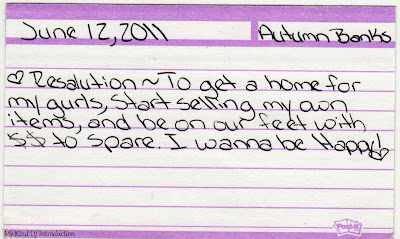 June 12, 2011
Autumn Banks
♡ Resalution ~ To get a home for
my gurls, Start selling my own
items, and be on our feet with
$$ to spare. I wanna be Happy!♡
Post-it
My Kind Of Introduction